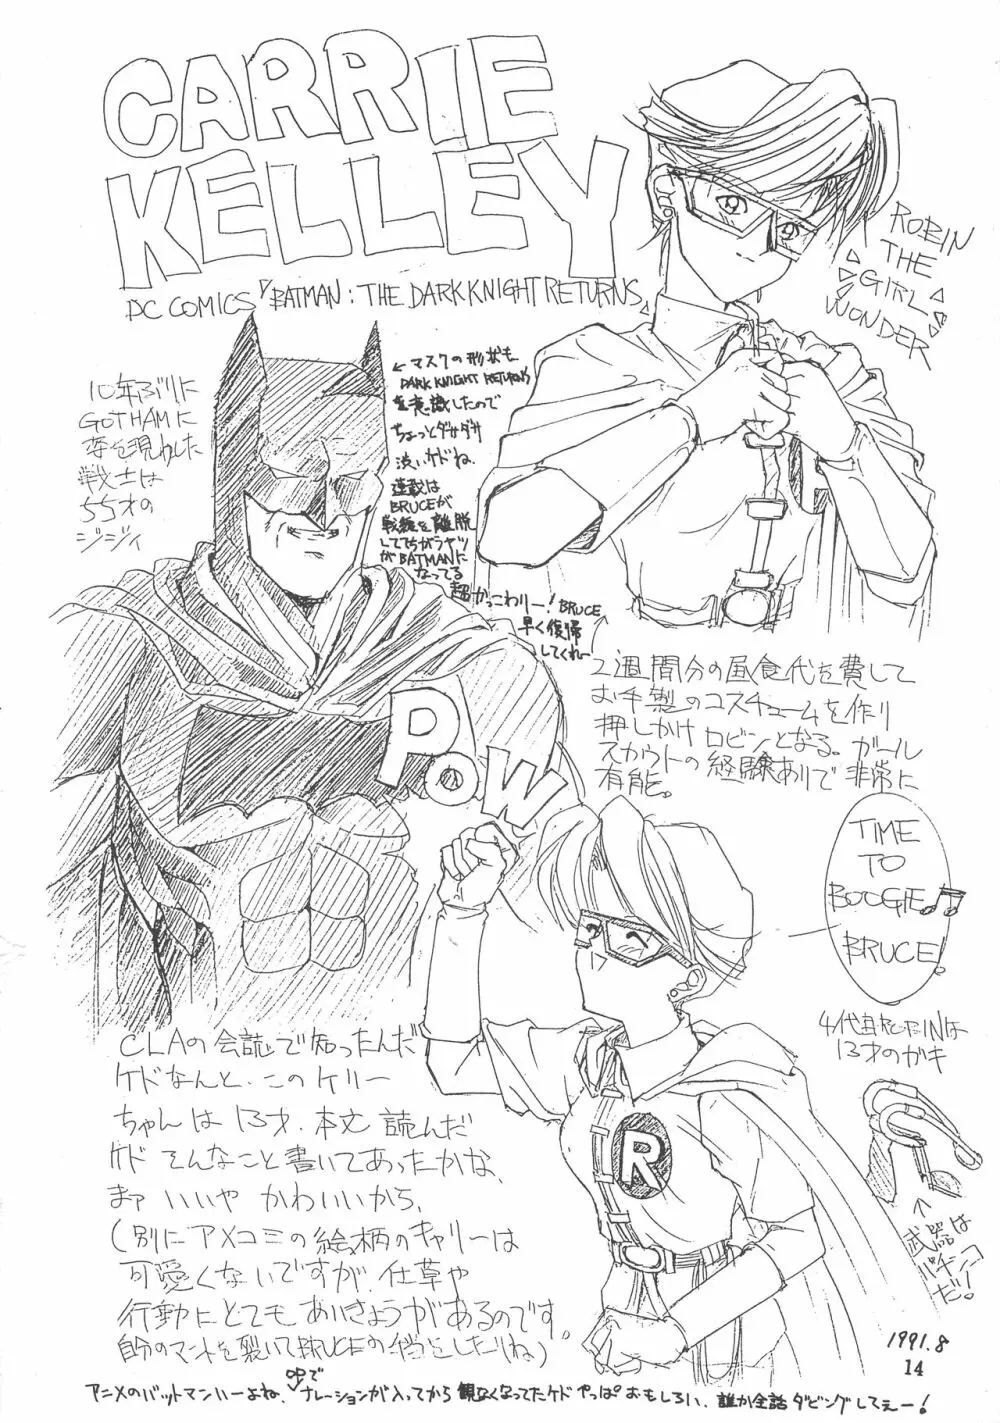 CARRIE
KELLEY
DC COMICS『BATMAN : THE DARK KNIGHT RETURNS』
ROBIN
THE
GIRL
WONDER
10年ぶりに
GOTHAMに
姿を現わした
戦士は
55才の
ジジィ
←マスクの形状も
DARK KNIGHT RETURNS
を意識したので
ちょっとダサダサ
渋いケドね.
連載は
BRUCEが
戦線を離脱
してちがうヤツ
がBATMANに
なってる
超かっこわりー! BRUCE
早く復帰
してくれー
2週間分の昼食代を費して
お手製のコスチュームを作り
押しかけロビンとなる。ガール
スカウトの経験ありで非常に
有能。
POW
TIME
TO
BOOGIE♫
BRUCE!
4代目ROBINは
13才のガキ
R
↑
武器は
パチンコ
だ!
CLAの会誌で知ったんだ
ケドなんと、このケリー
ちゃんは13才.本文読んだ
ケドそんなこと書いてあったかな、
まァいいや かわいいから、
(別にアメコミの絵柄のキャリーは
可愛くないですが、仕草や
行動にとてもあいきょうがあるのです。
自分のマントを裂いてBRUCEの手当をしたりね)
1991.8
14
アニメのバットマンいーよね、中でナレーションが入ってから観なくなってたケド やっぱおもしろい、誰か全話ダビングしてぇー!